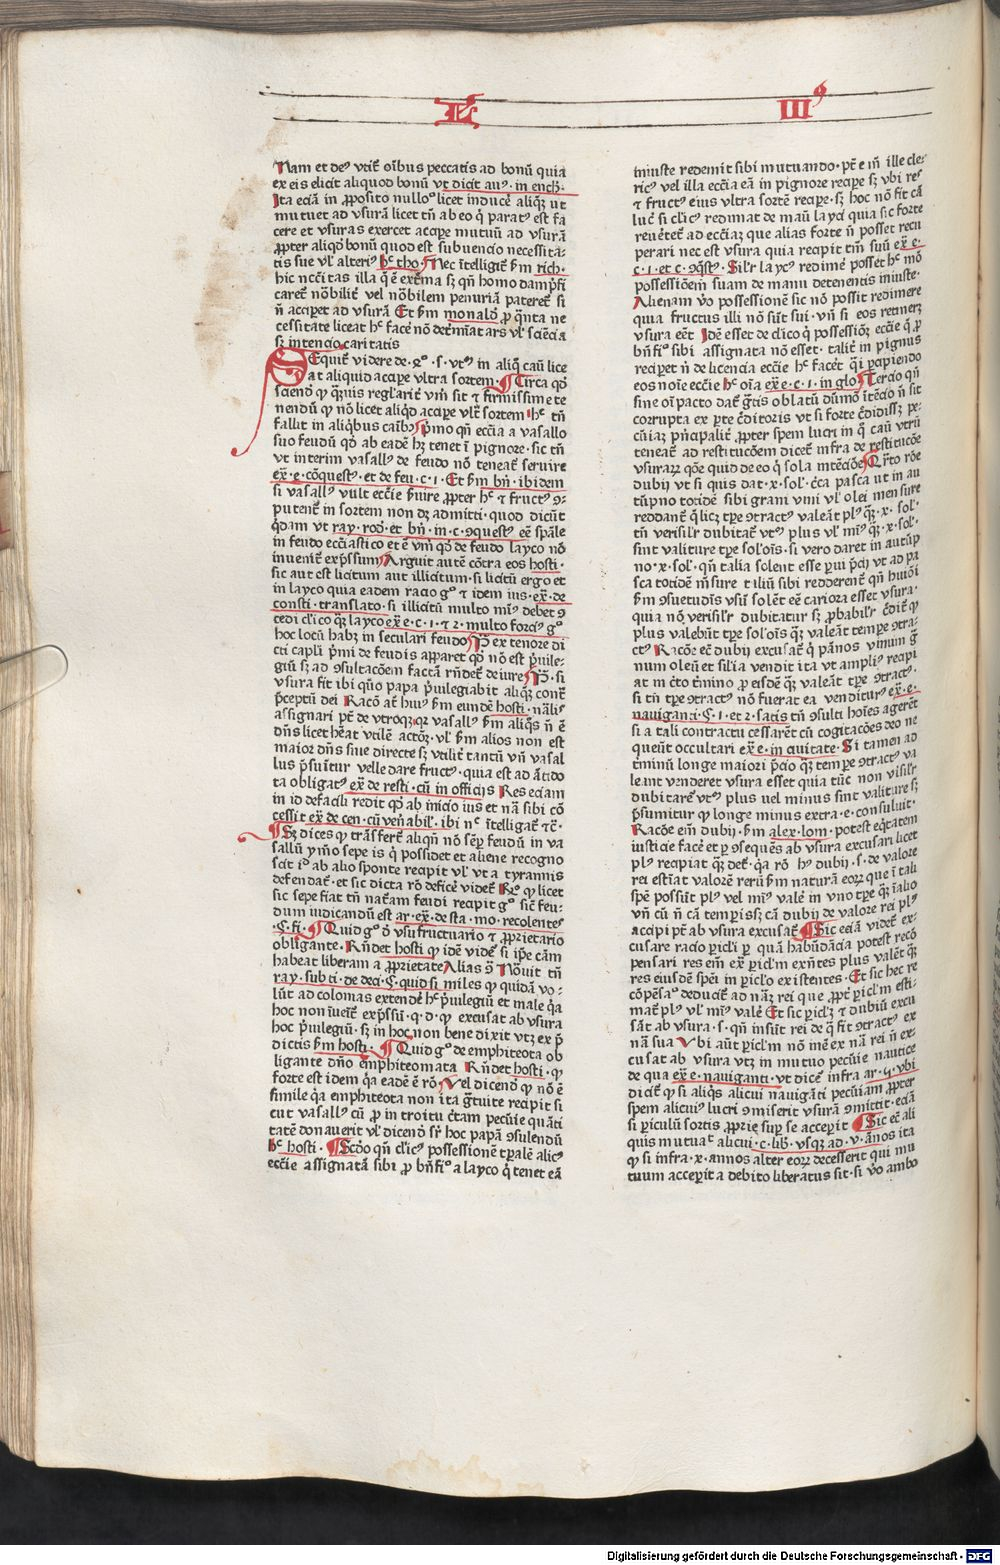 L III⁹
Nam et deꝰ vtiť oībus peccatis ad bonū quia
ex eis elicit aliquod bonū vt dicit auꝰ· in ench·
Ita eciā in ꝓposito nulloº licet inducē aliqꝫ ut
mutuet ad vsurā licet tn̄ ab eo q̇ paratꝰ est fa
cere et vsuras exercet accipe mutuū ad vsurā
ꝓpter aliqď bonū quod est subuencio necessita-
tis sue vl̕ alteriꝰ hͨ tho· Nec ītelligit̄ ẜm rich·
hic nccītas illa q̄ ē extrēa sꝫ qn̄ homo dampſi
caret̄ nōbiliť vel nōbilem penuriā pateret̄ si
n̄ acciꝑet ad vsurā Et ẜm monalď ꝓ q̄nta ne
cessitate liceat hͨ facē nō deťmīat ars vl̕ sciēcia
sꝫ intencio caritatis
Sequiť videre de·2º·s·vtꝝ in aliq̊ cau̅ lice
at aliquid accipe vltra sortem· Circa qď
sciend̄ ꝙ q̄uis regl̕ariť vm̄ sit ⁊ firmissime te
nendū ꝙ nō licet aliqď accipe vlť sortem hͨ tn̄
fallit in aliqbus caībꝰ Pͥmo qn̄ eccīa a vasallo
suo feudū qď ab eadē hꝫ tenet ī pignore·sic tn̄
vt interim vasallꝰ de feudo nō teneať seruire
exͣ·e·cōquestꝰ·et de feu·c·1· Et ẜm bn̄·ibidem
si vasallꝰ vult eccīe ẜuire ꝓpter hͨ ⁊ fructꝰ ꝯ-
putent̄ in sortem non dꝫ admitti·quod dicūt
q̇dam vt ray·roď·et bn̄·in·c·ꝯquestꝰ eē spāle
in feudo ecciīastico et ē vm̄ qď de feudo layco nō
inueniť exp̄ssum Arguit autē cōtra eos hosti·
sic aut est licitum aut illicitum·si licitū ergo et
in layco quia eadem racio gº ⁊ idem ius·exͣ·de
consti·translato·si illicitū multo mīꝰ debet ꝯ
cedi cl̕ico qꝫ layco exͣ e·c·1·⁊ 2·multo forciꝰ gº
hoc locū habꝫ in seculari feudo P̄ ex tenore di
cti capl̕i pͥmi de feudis apparet qď nō est pͥuile-
giū sꝫ ad ꝯsultacōem factā rn̄deť de iure P̄·si
vsura fit ibi qūo papa pͥuilegiabit aliqꝫ conť
p̄ceptū dei Racō at̄ huiꝰ ẜm eundē hosti·nālīs
assignari pt̄ de vtroqꝫ·qꝛ vasallꝰ ẜm aliqs n̄ ē
dn̄s licet heat vtilē actōꝫ·vl̕ ẜm alios non est
maior dn̄s siue directe sꝫ vtiliť tantū vn̄ vasal
lus p̄suītur velle dare fructꝰ·quia est ad ātido
ta obligatꝰ exͣ de resti·cū in officijs Res eciam
in id defacili redit qď ab inicio ius et nā sibi cō
cessit exͣ de cen·cū veń abil̕·ibi nͨ ītelligať ⁊c̄·
Sꝫ dices ꝙ trāsferť aliqn̄ nō sēꝑ feudū in va
sallū ymo sepe is q̇ possidet et aliene recogno
scit id ab alio sponte recipit vl̕ ut a tyrannis
defendať·et sic dicta rō deficē videť Rͦ ꝙ licet
sic sepe fiat tn̄ nať̄am feudi recipit gº sic̄ feu-
dum iudicandū est ar·exͣ·de sta·mo·recolentes
·C·fi· Quid gº ð vsufructuario ⁊ ꝓprietario
obligante·Rn̄det hosti ꝙ idē videť si ipē cām
habeat liberam a ꝓprietate Alias ꝯ̄ Nōuit tn̄
ray·sub ti·de deci·C·quid si miles ꝙ quidā vo-
lūt ad colonias extendē hͨ pͥuilegiū et male q̇a
hoc non īueīť exp̄ssū·q·d·ꝙ excusat ab vsura
hoc pͥuilegiū·sꝫ in hoc non bene dixit vtꝫ ex p̄
dictis ẜm hosti· Quid gº de emphiteota ob
ligante dn̄o emphiteomata Rn̄det hosti·ꝙ
forte est idem q̇a eadē ē rō Vel dicend̄ ꝙ nō ē
ſimile q̇a emphiteota non ita gͣtuite recipit si
cut vasallꝰ cū ꝓ introitu c̄tam pecūie quāti
tatē donauerit vl̕ dicend̄ sr̄ hoc papā ꝯsulendū
hͨ hosti· Scďo qn̄ cl̕icꝰ possessionē tp̄alē alicꝰ
eccīe assignatā sibi ꝓ bn̄fiͦ a layco q̇ tenet eā
iniuste redemit sibi mutuando·pt̄ eīn̄ ille cle-
ricꝰ vel illa eccīa eā in pignore recipe sꝫ vbi res
⁊ fructꝰ eius vltra sortē recipe·sꝫ hoc nō fit cā
lucͥ si cl̕icꝰ redimat de manū layci quia sic forte
reūteť ad eccīaꝫ que alias forte n̄ posset recu
perari nec est vsura quia recipit tm̄ suū exͣ e·
c·1·et c·ꝯq̄stꝰ· Sil̕r laycꝰ redimē posset hͨ mō
possessiōem suam de manu detenentis iniuste·
Alienam vo possessionē sic nō possit redimere
quia fructus illi nō sūt sui·vn̄ si eos retinerꝫ
vsura eēt Idē esset de cl̕ico q̇ possessiōꝫ eccīe q̄ ꝓ
bn̄fiº sibi assignata nō esset·taliť in pignus
reciperet n̄ de licencia eccīe hͨ facēt q̄i ꝑcipiendo
eos noīe eccīe hͨ oīa exͣ e·c·1·in glo Tercio qn̄
sine oī pacto daf̄ gͣtis oblatū dūmō ītēcio n̄ sit
corrupta ex pͬte c̓ditoris vt si forte c̓didissꝫ pe-
cūiaꝫ pn̄cipaliť ꝓpter spem lucri in q̊ cau̅ vtꝝ
teneať ad restitucōem diceť infra de restitucōe
vsuraꝝ qōe quid de eo q̇ sola intēciōe Qͬto rōe
dubij vt si quis dat·x·sol·c̓ca pasca ut in au
tūpno totidē sibi grani vini vl̕ olei mensure
reddant̄ q̄ licꝫ tp̄e ꝯtractꝰ valeāt plꝰ qꝫ·x·sol·
tn̄ verisil̕r dubitat̄ vtꝝ plus vl̕ miꝰ qꝫ·x·sol·
sint valiture tp̄e sol̕oīs·si vero daret in autūp
no·x·sol·qn̄ talia solent esse parui p̄cij vt ad pa
sca totidē mēsure ⁊ iliū sibi redderent̄ qn̄ huiōi
ẜm ꝯsuetudīs vsū solēt eē cariora esset vsura·
quia nō verisil̕r dubitatur sꝫ ꝓbabil̕r c̓diť ꝙ
plus valebūt tp̄e sol̕oīs qꝫ valeāt tempe ꝯtra-
ctꝰ Racōe ec̄ dubij excusať q̇ pānos vinum g̓
num oleū et sil̕ia vendit ita vt ampliꝰ recipi
at in c̓to t̓mino ꝓ eisdē qꝫ valeāt tp̄e ꝯtractꝰ·
si tn̄ tp̄e ꝯtractꝰ nō fuerat ea venditurꝰ exͣ e·
nauiganti·C·1·et 2·satis tn̄ ꝯsulti hoīes agerēt
si a tali contractu cessarēt cū cogitacōes deo ne
queūt occultari exͣ e·in ciuitate· Si tamen ad
t̓minū longe maiori p̄cio qꝫ tempe ꝯtractꝰ va
leant venderet vsura esset quia tūc non visil̕r
dubitaret̄ vtꝝ plus vel minus sint valiture sꝫ
p̄sumitur ꝙ longe minus extra·e·consuluit·
Racōe em̄ dubij·ẜm alex·lom·potest eq̇tatem
iusticie facē et ꝑ ꝯsequēs ab vsura excusari licet
plꝰ recipiat qꝫ deť·q̇a rō hꝰ dubij·s·de valore
rei estīat valorē rerū ẜm naturā eoꝝ que ī tali
spē possūt plꝰ vel miꝰ valē in vno tp̄e qꝫ ī alio
vn̄ cū n̄ cā temp̄is sꝫ cā dubij de valore rei plꝰ
accipi pt̄ ab vsura excusať Sic eciā videť ex-
cusare racio ꝑicl̕i ꝑ quā habūdācia potest recō
pensari res em̄ exͣ ꝑicl̕m exn̄tes plus valēt qꝫ
res eiusdē spēi in ꝑicl̕o existentes· Et sic hec re
cōpēsaº deduciť ad nāꝫ rei que ꝓpť ꝑicl̕m esti-
mať plꝰ vl̕ miꝰ valē Et sic ꝑicl̕ꝫ ⁊ dubiū excu
sāt ab vsura·s·qn̄ insūt rei de q̄ fit ꝯtractꝰ ex
nā sua Vbi aūt ꝑicl̕m nō inē ex nā rei n̄ ex-
cusat ab vsura vtꝫ in mutuo pecūie nautice
de qua exͣ e·nauiganti·vt dicē infra ar·9·vbi
diciť ꝙ si aliqs alicui nauigāti pecūiam ꝓpter
spem alicuiꝰ lucri ꝯmiserit vsurā ꝯmittit·eciā
si ꝑiculū sortis ꝓprie suꝑ se accep̄it Sic ec̄ ali
quis mutuať alicui·c·lib̄·vsqꝫ ad·v·ānos ita
ꝙ si infra·x·annos alter eoꝝ decesserit qui mu
tuum accep̄it a debito liberatus sit·si vo ambo
Digitalisierung gefördert durch die Deutsche Forschungsgemeinschaft · DFG